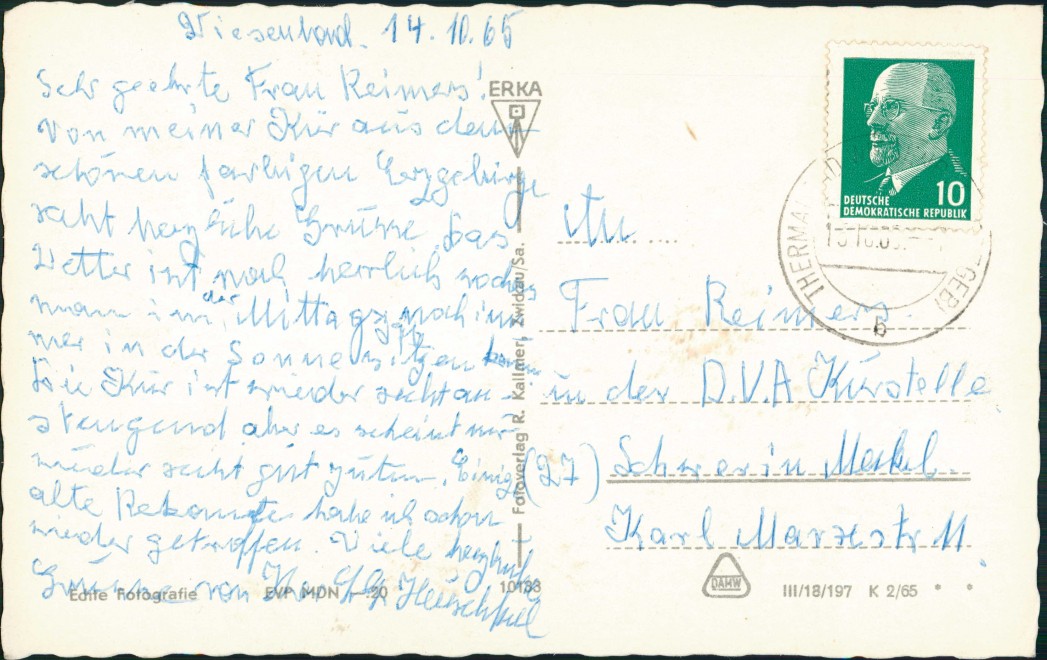 Wiesenbad. 14.10.65
Sehr geehrte Frau Reimers!
Von meiner Kur aus dem
schönen farbigen Erzgebirge
recht herzliche Grüsse. Das
Wetter ist noch herrlich sodas
man in der Mittagszeit noch im
mer in der Sonne sitzen kann
Die Kur ist wieder recht an-
strengend aber es scheint mir
wieder recht gut zutun. Einige
alte Bekannte habe ich schon
wieder getroffen. Viele herzliche
Grüsse von
ERKA
Fotoverlag R. Kallmer, Zwickau/Sa.
10133
Echte Fotografie EVP MDN -.20
DEUTSCHE
DEMOKRATISCHE REPUBLIK
10
THERMAL
b
An
Frau Reimers
in der D.V.A Kurstelle
(27) Schwerin Meckl.
Karl Marxestr 11
DAMW
III/18/197 K 2/65